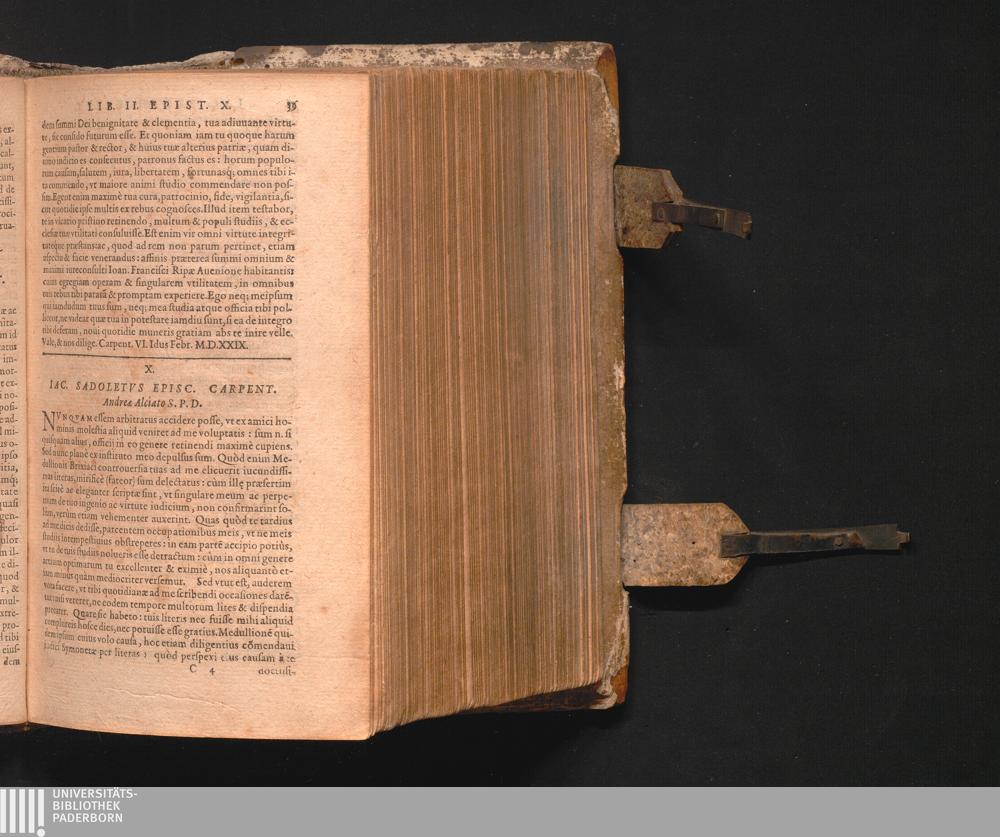 LIB. II. EPIST. X. 39
dem summi Dei benignitate & clementia, tua adiuuante virtu-
te, sic confido futurum esse. Et quoniam iam tu quoque harum
gentium pastor & rector, & huius tuæ alterius patriæ, quam di-
uino indicio es consecutus, patronus factus es: horum populo-
rum causam, salutem, iura, libertatem, fortunasq; omnes tibi i-
ta commendo, vt maiore animi studio commendare non pos-
sim. Egent enim maximè tua cura, patrocinio, fide, vigilantia, si-
cut quotidie ipse multis ex rebus cognosces. Illud item testabor,
te in vicario pristino retinendo, multum & populi studiis, & ec-
clesiæ tuæ vtilitati consuluisse. Est enim vir omni virtute integri-
tateque præstansac, quod ad rem non parum pertinet, etiam
aspectu & facie venerandus: affinis præterea summi omnium &
maximi iureconsulti Ioan. Francisci Ripæ Auenione habitantis:
cuius egregiam operam & singularem vtilitatem, in omnibus
tuis rebus tibi paratã & promptam experiere. Ego neq; meipsum
qui iamdudum tuus sum, neq; mea studia atque officia tibi pol-
liceor, ne videar quæ tua in potestate iamdiu sunt, si ea de integro
tibi deferam, noui quotidie muneris gratiam abs te inire velle.
Vale, & nos dilige. Carpent. VI. Idus Febr. M.D.XXIX.
X.
IAC. SADOLETVS EPISC. CARPENT.
Andreæ Alciato S. P. D.
NVNQVAM essem arbitratus accidere posse, vt ex amici ho-
minis molestia aliquid veniret ad me voluptatis: sum n. si
quisquam alius, officij in eo genere retinendi maximè cupiens.
Sed nunc planè ex instituto meo depulsus sum. Quòd enim Me-
dullionis Brixiaci controuersia tuas ad me elicuerit iucundissi-
mas literas, mirificè (fateor) sum delectatus: cùm illę præsertim
ita scitè ac eleganter scriptæ sint, vt singulare meum ac perpe-
tuum de tuo ingenio ac virtute iudicium, non confirmarint so-
lùm, verùm etiam vehementer auxerint. Quas quòd te tardius
ad me dicis dedisse, parcentem occupationibus meis, vt ne meis
studiis intempestiuius obstreperes: in eam partẽ accipio potiùs,
vt tu de tuis studiis nolueris esse detractum: cùm in omni genere
artium optimarum tu excellenter & eximiè, nos aliquantò et-
iam minus quàm mediocriter versemur. Sed vtut est, auderem
vota facere, vt tibi quotidianæ ad me scribendi occasiones darẽ-
tur: nisi vererer, ne eodem tempore multorum lites & dispendia
precarer. Quare sic habeto: tuis literis nec fuisse mihi aliquid
complureis hosce dies, nec potuisse esse gratius. Medullionẽ qui-
dem ipsum cuius volo causa, hoc etiam diligentius cõmendaui
iudici Symonetæ per literas: quòd perspexi eius causam à te
C 4 doctissi-
dem
UNIVERSITÄTS-
BIBLIOTHEK
PADERBORN